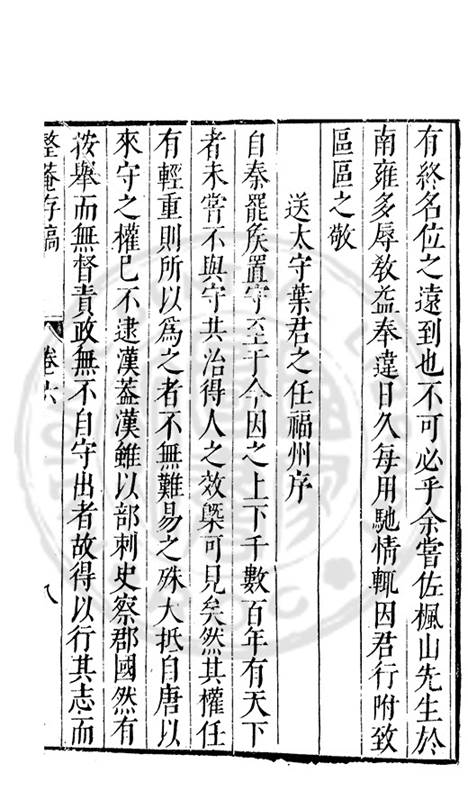 有終名位之遠到也不可必乎余嘗佐楓山先生於
南雍多辱敎益奉違日久每用馳情輒因君行附致
區區之敬
送太守葉君之任福州序
自秦罷矦置守至于今因之上下千數百年有天下
者未嘗不與守共治得人之效槩可見矣然其權任
有輕重則所以爲之者不無難易之殊大抵自唐以
來守之權已不逮漢葢漢雖以部刺史察郡國然有
按舉而無督責政無不自守出者故得以行其志而
整菴存稿
卷六
八